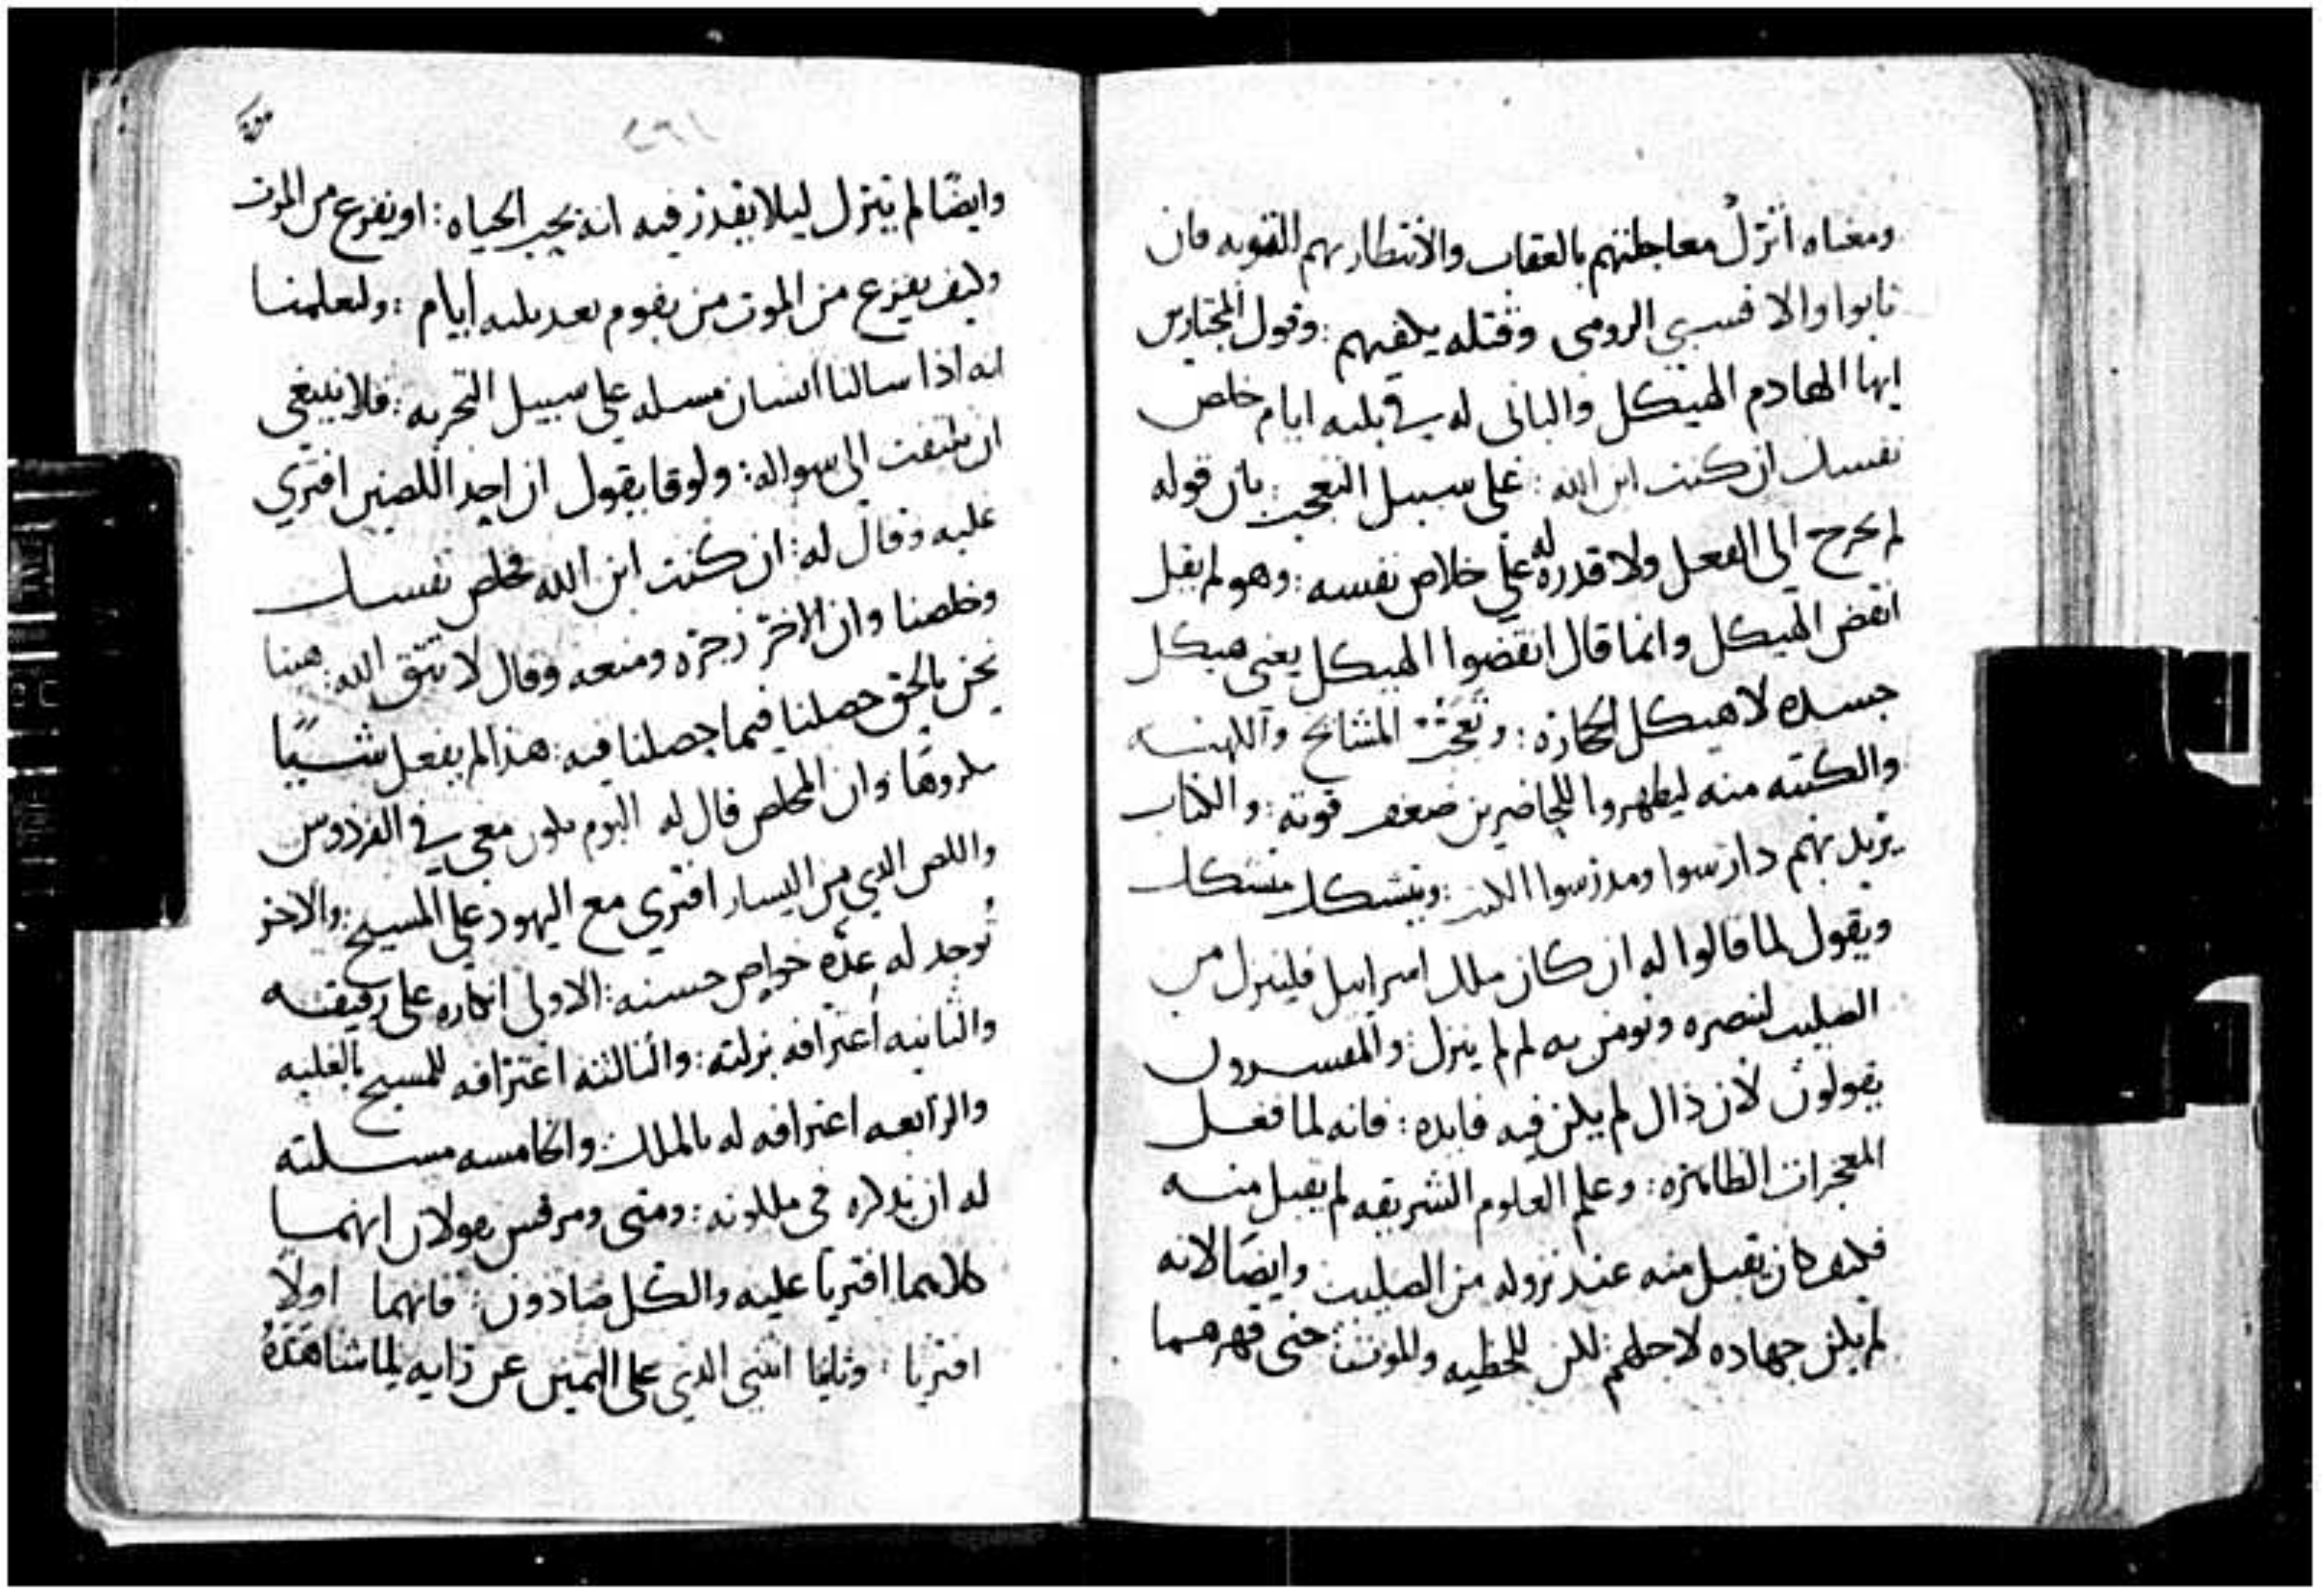 ومعناه أترك معاجلتهم بالعقاب والانتظار بهم التوبه فان
تابوا والا فسبي الرومي وقتله يلقيهم : وقول المجتازين
ايها الهادم الهيكل والباني له في ثلثه ايام خلص
نفسك ان كنت ابن الله : على سبيل التعجب : بان قوله
لم يخرج الى الفعل ولا قدره له على خلاص نفسه : وهو لم يقل
انقض الهيكل وانما قال انقضوا الهيكل يعني هيكل
جسده لا هيكل الحجاره : وتعجب المشايخ والكهنه
والكتبه منه ليظهروا للحاضرين ضعف قوته : والكتاب
يريد بهم دارسوا ومدرسوا الكتب : ويتشكك متشكك
ويقول لما قالوا له ان كان ملك اسراييل فلينزل من
الصليب لننصره ونومن به لم لم ينزل : والمفسرون
يقولون لان ذاك لم يكن فيه فايده : فانه لما فعل
المعجزات الظاهره : وعلم العلوم الشريفه لم يقبل منه
فكيف كان يقبل منه عند نزوله من الصليب وايضا لانه
لم يكن جهاده لاجلهم : لكن للخطيه وللموت : حتى قهرهما
٢٦١
وايضًا لم ينزل ليلا يقدر فيه انه يحب الحياه : او يفزع من الموت
وكيف يفزع من الموت من يقوم بعد ثلثه ايام : ولعلمنا
انه اذا سالنا انسان مسله على سبيل التجربه : فلا ينبغي
ان نلتفت الى سواله : ولوقا يقول ان احد اللصين افتري
عليه وقال له : ان كنت ابن الله فخلص نفسك
وخلصنا وان الاخر زجره ومنعه وقال لا تتق الله : هبنا
نحن بالحق حصلنا فيما حصلنا فيه : هذا لم يفعل شيًا
مكروهًا وان المخلص قال له اليوم تكون معي في الفردوس
واللص الذي من اليسار افتري مع اليهود على المسيح : والاخر
توجد له عده خواص حسنه : الاولى انكاره على رفيقه
والثانيه اعترافه بزلته : والثالثه اعترافه للمسيح بالغلبه
والرابعه اعترافه له بالملك : والخامسه مسلته
له ان يذكره في ملكوته : ومتى ومرقس يقولان انهما
كلاهما افتريا عليه والكل صادقون : فانهما اولًا
افتريا : وثانيا انثنى الذي على اليمين عن رايه لما شاهده